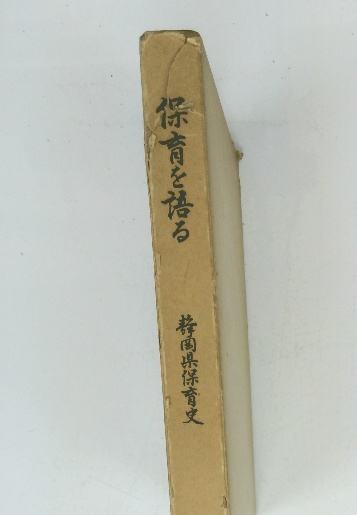 保育を語る
静岡県保育史